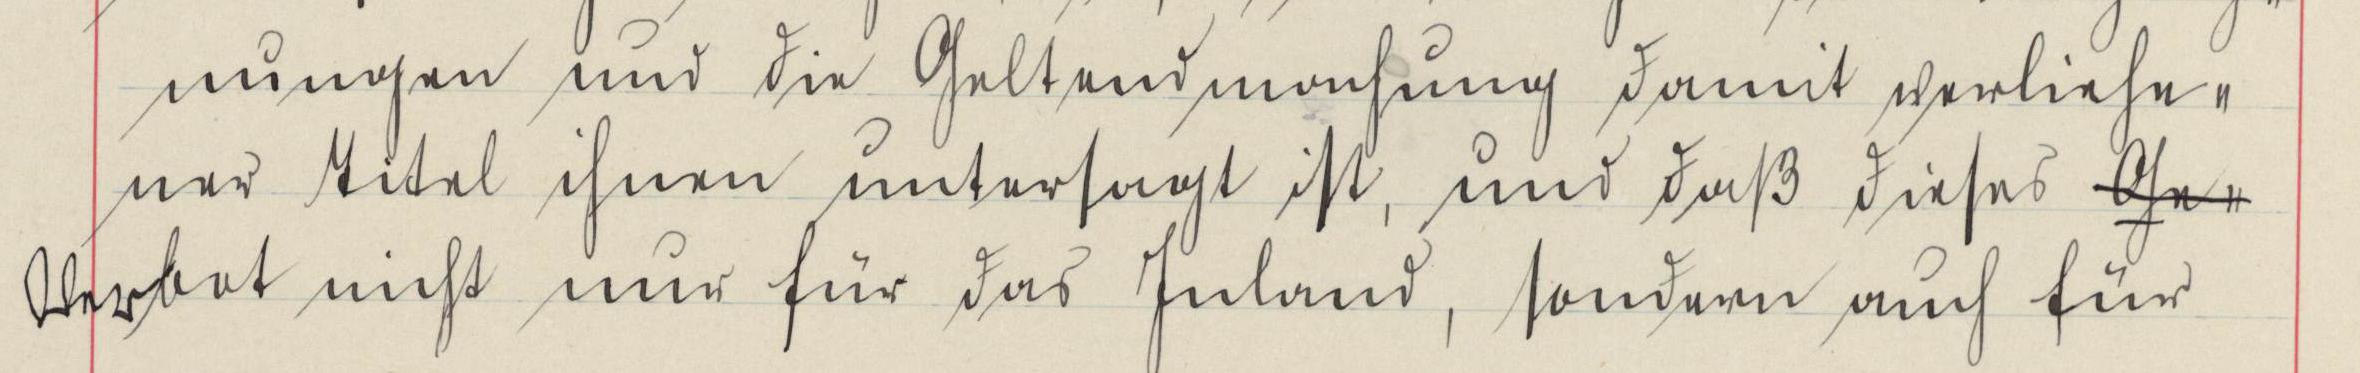 nungen und die Geltendmachung damit verliehe-
ner Titel ihnen untersagt ist, und daß dieses Ge-
Verbot nicht nur für das Inland, sondern auch für